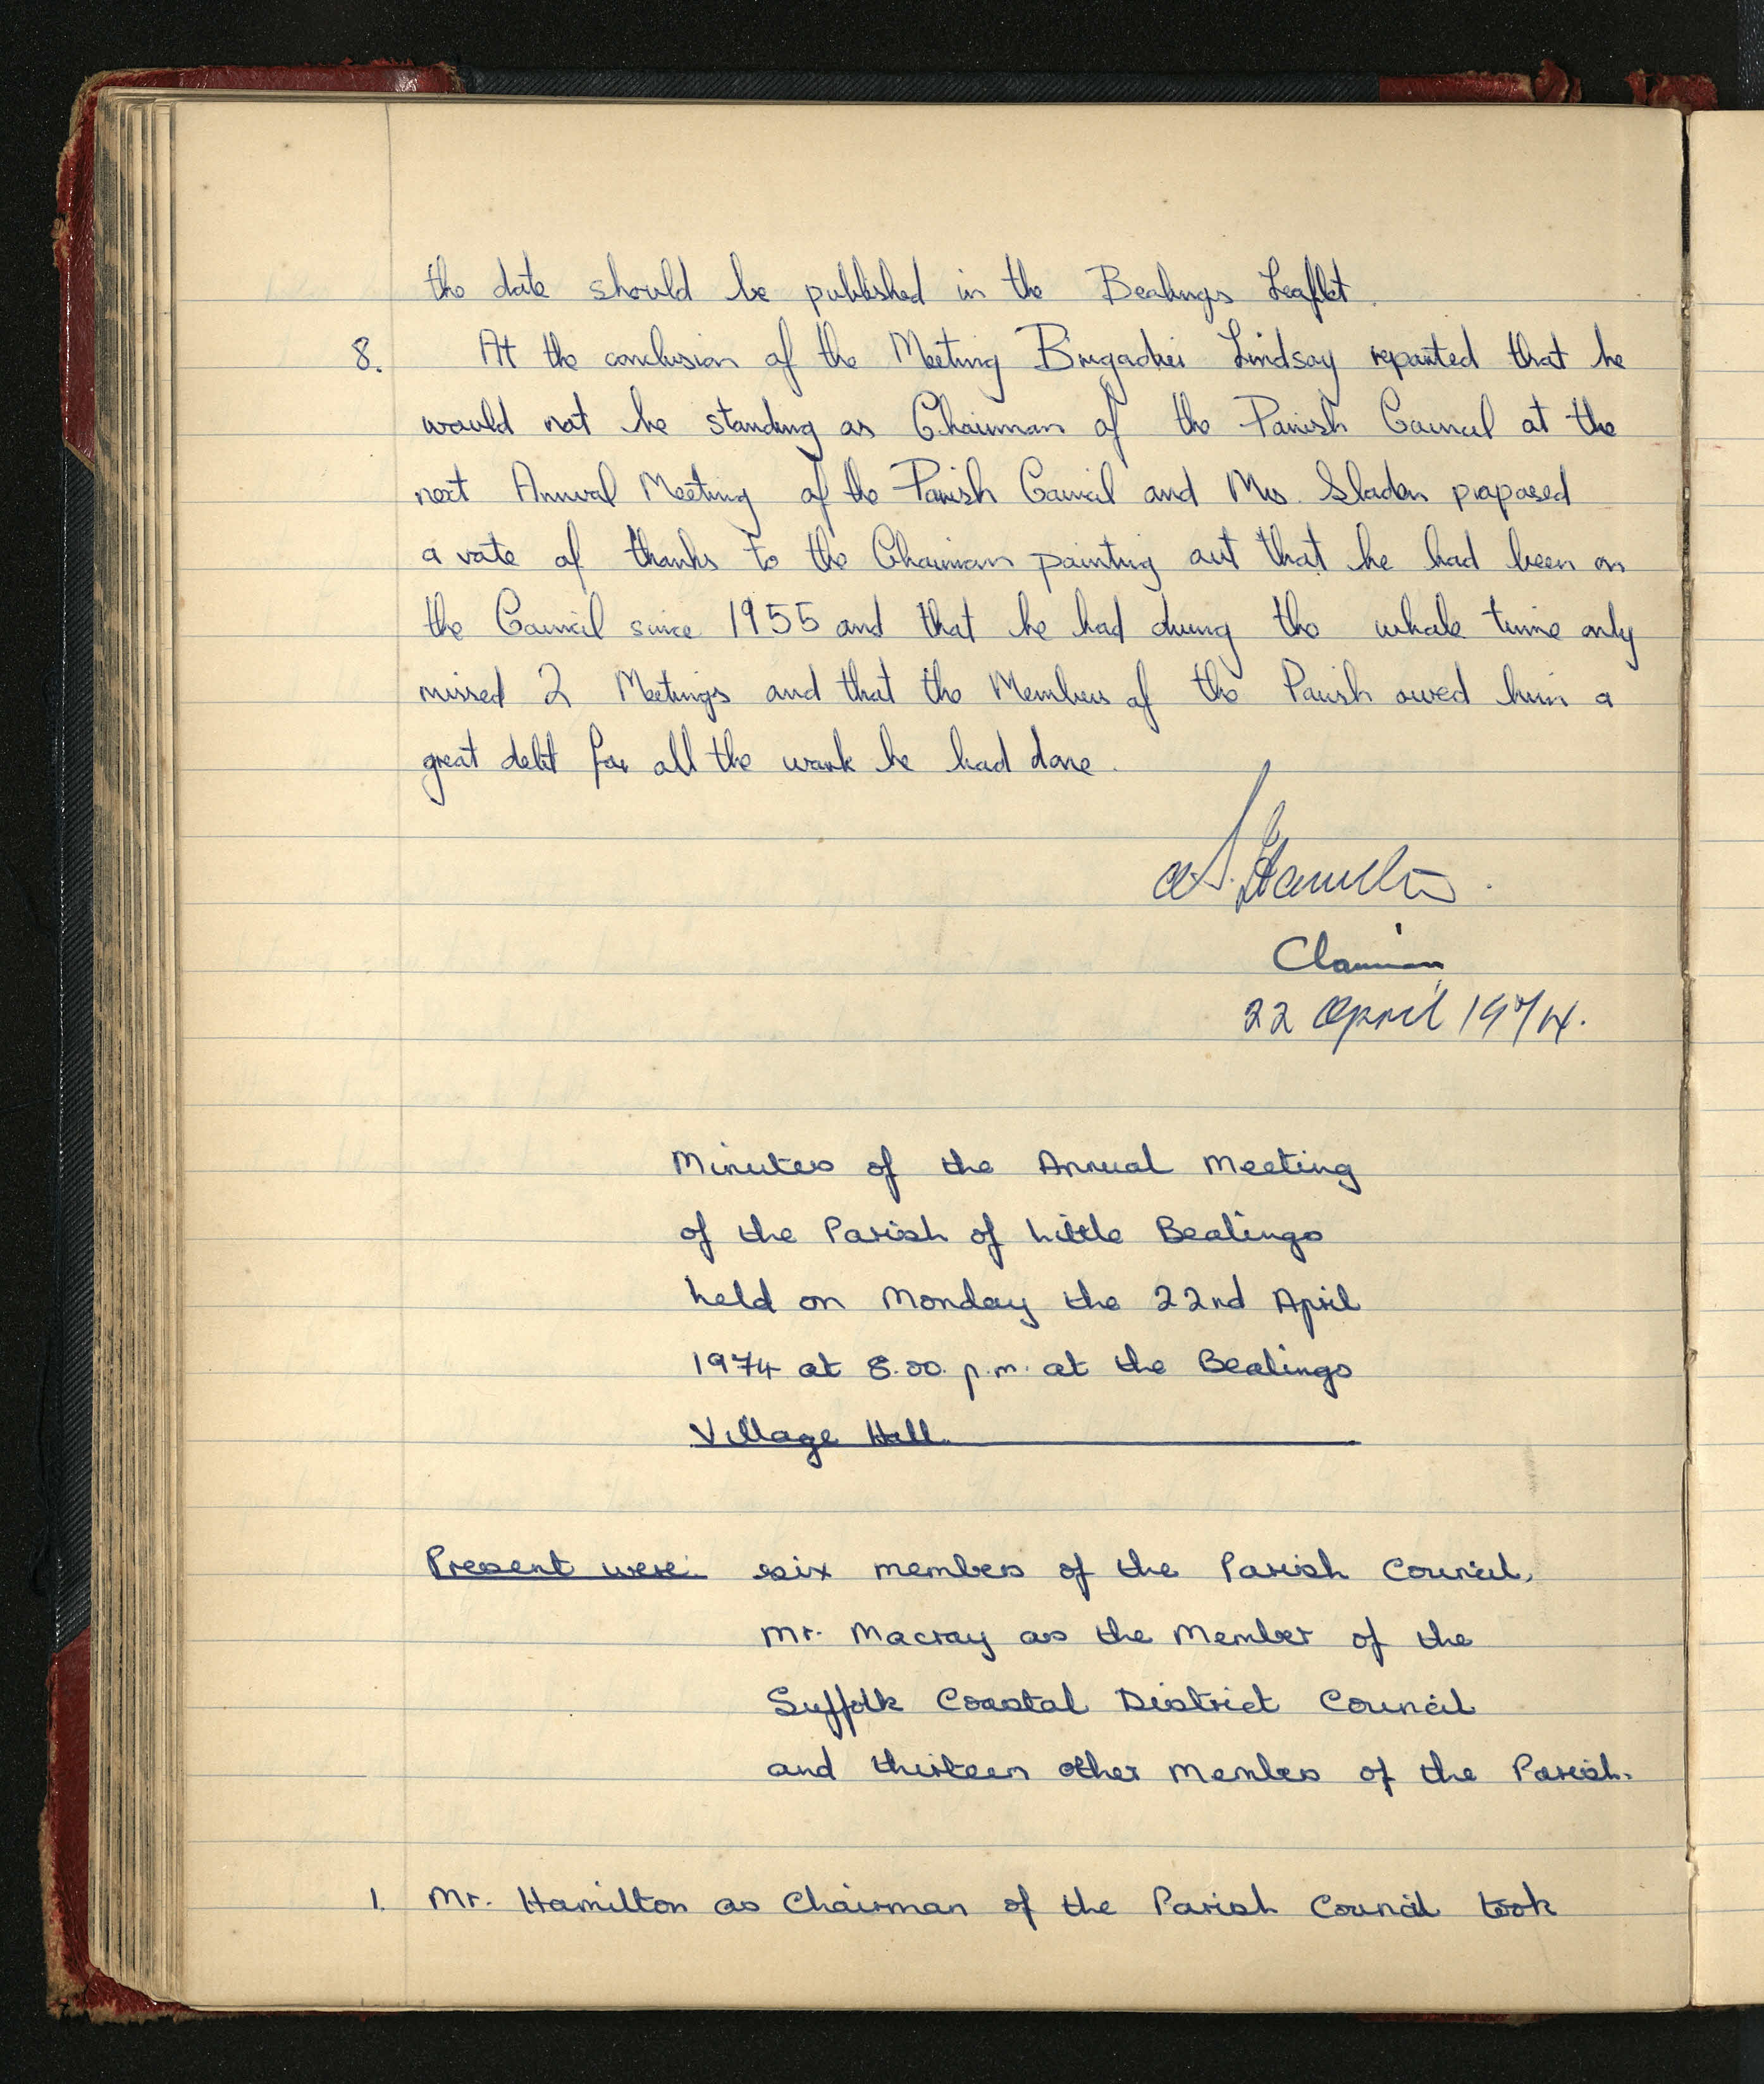 the date should be published in the Bealings Leaflet.
8. At the conclusion of the Meeting Brigadier Lindsay reported that he
would not be standing as Chairman of the Parish Council at the
next Annual Meeting of the Parish Council and Mrs. Sladen proposed
a vote of thanks to the Chairman pointing out that he had been on
the Council since 1955 and that he had during the whole time only
missed 2 Meetings and that the Members of the Parish owed him a
great debt for all the work he had done.
Hamilton.
Chairman
22 April 1974.
Minutes of the Annual Meeting
of the Parish of Little Bealings
held on Monday the 22nd April
1974 at 8.00. p.m. at the Bealings
Village Hall.
Present were: six members of the Parish Council,
Mr. Macray as the Member of the
Suffolk Coastal District Council
and thirteen other Members of the Parish.
1. Mr. Hamilton as Chairman of the Parish Council took